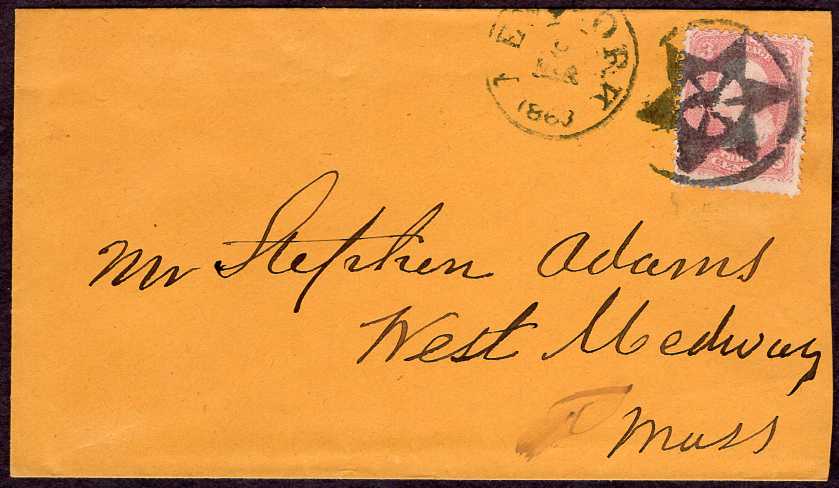 1863
3
CENTS
Mr Stephen Adams
West Medway
Mass